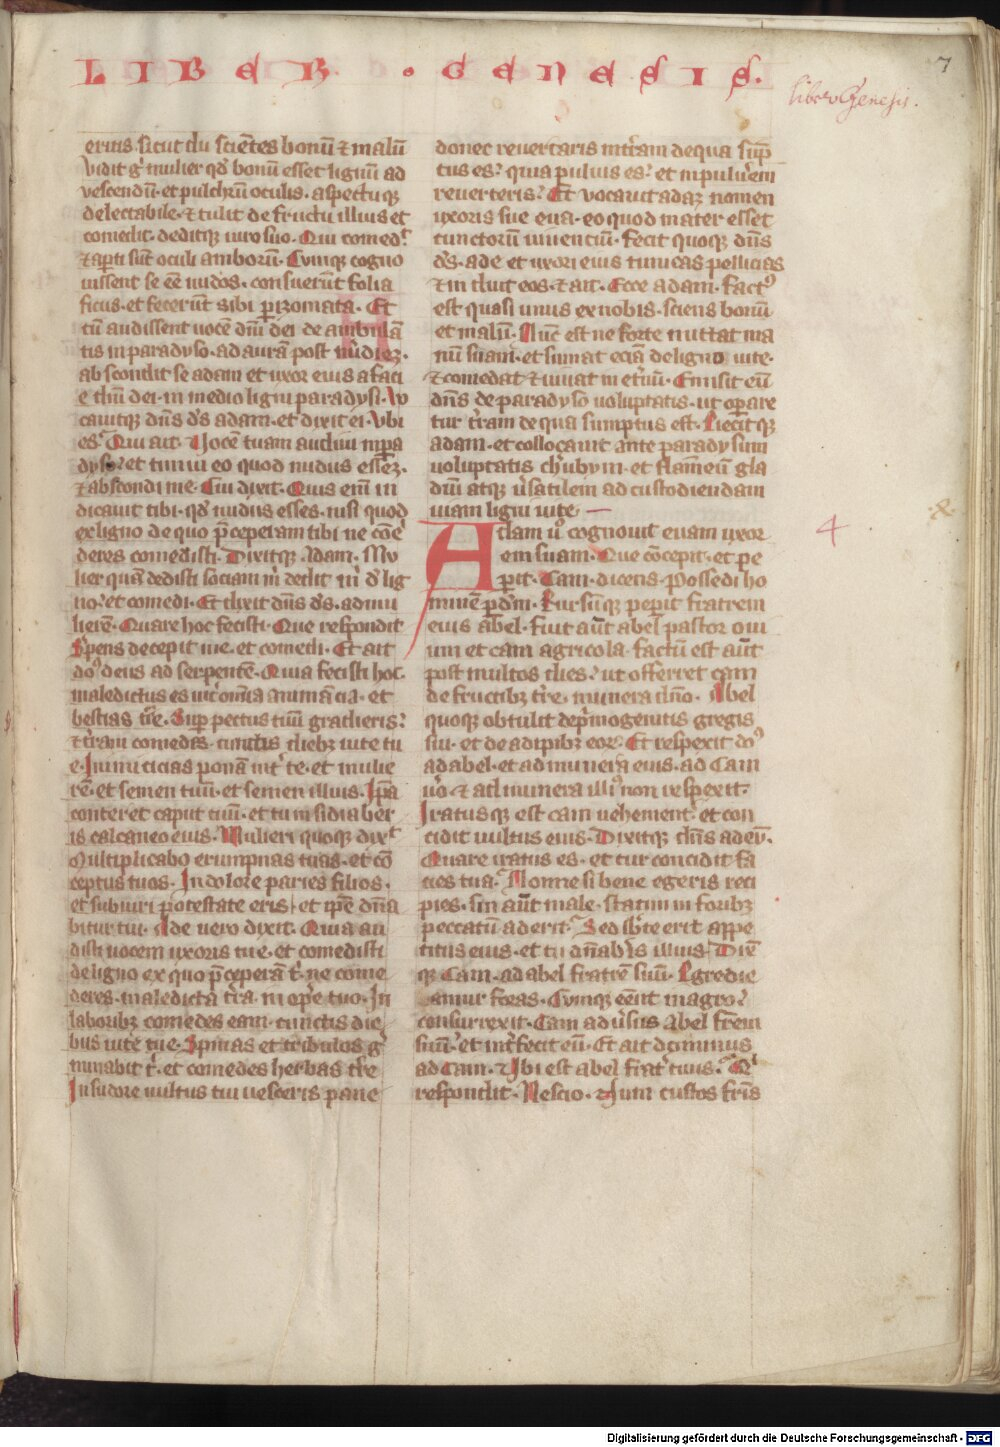 LIBER · GENESIS.
7
liber Genesis.
eritis. sicut dii sciẽtes bonũ ⁊ malũ
Vidit gͥ mulier qđ bonũ esset lignũ ad
vescendũ· et pulchrũ oculis. aspectuqꝫ
delectabile· ⁊ tulit de fructu illius et
comedit· deditqꝫ uiro suo. Qui comedͭ
⁊ aꝑti sũt oculi amborũ. Cumqꝫ cogno
uissent se eẽ nudos. consuerũt folia
ficus· et fecerũt sibi ꝑizomata. Et
tũ audissent uocẽ dñi dei de ambulã
tis in paradyso. ad aurã post m̃diẽ.
abscondit se adam et uxor eius a faci
e dñi dei· in medio ligni paradysi. Vo
cauitqꝫ dñs đs adam. et dixit ei. Vbi
es. Qui ait. Vocẽ tuam audiui in ꝑa
dyso. et timui eo quod nudus essẽ.
⁊ abscondi me. Cui dixit. Quis eñi in
dicauit tibi. qđ nudus esses. nisi quod
ex ligno de quo p̃ceperam tibi ne cõe
deres comedisti. Dixitqꝫ Adam. Mu
lier quã dedisti sociam m̃ dedit m̃ đ lig
no. et comedi. Et dixit dñs đs. ad mu
lierẽ. Quare hoc fecisti. Que respondit
Sꝑens decepit me. et comedi. Et ait
doꝰ deus ad serpentẽ. Quia fecisti hoc.
maledictus es int̾ om̃ia animãcia. et
bestias tr̃e. Suꝑ pectus tuũ gradieris.
⁊ tr̃am comedas. cunctis diebꝫ uite tu
e. Inimicicias ponã int̾ te. et mulie
rẽ. et semen tuũ. et semen illius. Ip̃a
conteret caput tuũ. et tu insidiaber
is calcaneo eius. Mulieri quoqꝫ dixͭ
Multiplicabo erumpnas tuas. et cõ
ceptus tuos. In dolore paries filios.
et sub uiri potestate eris. et ip̃e dña
bitur tui. Ade uero dixit. Quia au
disti uocem uxoris tue. et comedisti
de ligno ex quo p̃ceperã t̾. ne come
deres. maledicta tr̃a. in oꝑe tuo. In
laboribꝫ comedes eam. cunctis die
bus uite tue. Spinas et tribulos gͤ
minabit t̾. et comedes herbas tr̃e
In sudore uultus tui uesceris pane
donec reuertaris in tr̃am de qua sũp
tus es. quia puluis es. et in puluẽm
reuerteris. Et vocauit adaꝫ nomen
uxoris sue eua. eo quod mater esset
cunctorũ uiuenciũ. fecit quoqꝫ dñs
đs. ade et uxori eius tunicas pellicias
⁊ induit eos. ⁊ ait. Ecce adam. factꝰ
est quasi unus ex nobis. sciens bonũ
et malũ. Nũc est ne forte mittat ma
nũ suam. et sumat eciã de ligno uite.
⁊ comedat ⁊ uiuat in et̾nũ. Emisit eũ
dñs de paradyso uoluptatis. ut oꝑare
tur tr̃am de qua sumptus est. Eiecitqꝫ
adam. et collocauit ante paradysum
uoluptatis ch̾ubyin. et flãmeũ gla
diũ atqꝫ ṽsatilem ad custodiendam
uiam ligni uite
4
Adam ṽ cognouit euam uxor
em suam. Que cõcepit. et pe
ꝑit. Cain. dicens. Possedi ho
minẽ ꝑ đm. Rursũqꝫ peꝑit fratrem
eius abel. Fuit aũt abel pastor oui
um et cain agricola. factũ est aũt
post multos dies. ut offerret cain
de fructibꝫ tr̃e. munera dño. Abel
quoqꝫ obtulit de p̾mogenitis gregis
sui. et de adipibꝫ eoꝝ. Et respexit doꝰ
ad abel. et ad munera eius. ad Cain
ṽo. ⁊ ad munera illiꝰ non respexit.
Iratusqꝫ est cain uehement̾. et con
cidit uultus eius. Dixitqꝫ dñs ad eũ.
Quare iratus es. et cur concidit fa
cies tua. Nonne si bene egeris reci
pies. sin aũt male. statim in foribꝫ
peccatũ aderit. Sed sb̾ te erit appe
titus eius. et tu dñab̾is illius. Dix̃
qꝫ Cain. ad abel fratrẽ suũ. Egredie
amur foras. Cumqꝫ eẽnt in agro.
consurrexit. Cain adṽsus Abel fr̃em
suũ. et int̾fecit eũ. Et ait dominus
ad Cain. Vbi est abel frat̾ tuus. Qͥ
respondit. Nescio. Num custos fr̃is
Digitalisierung gefördert durch die Deutsche Forschungsgemeinschaft · DFG